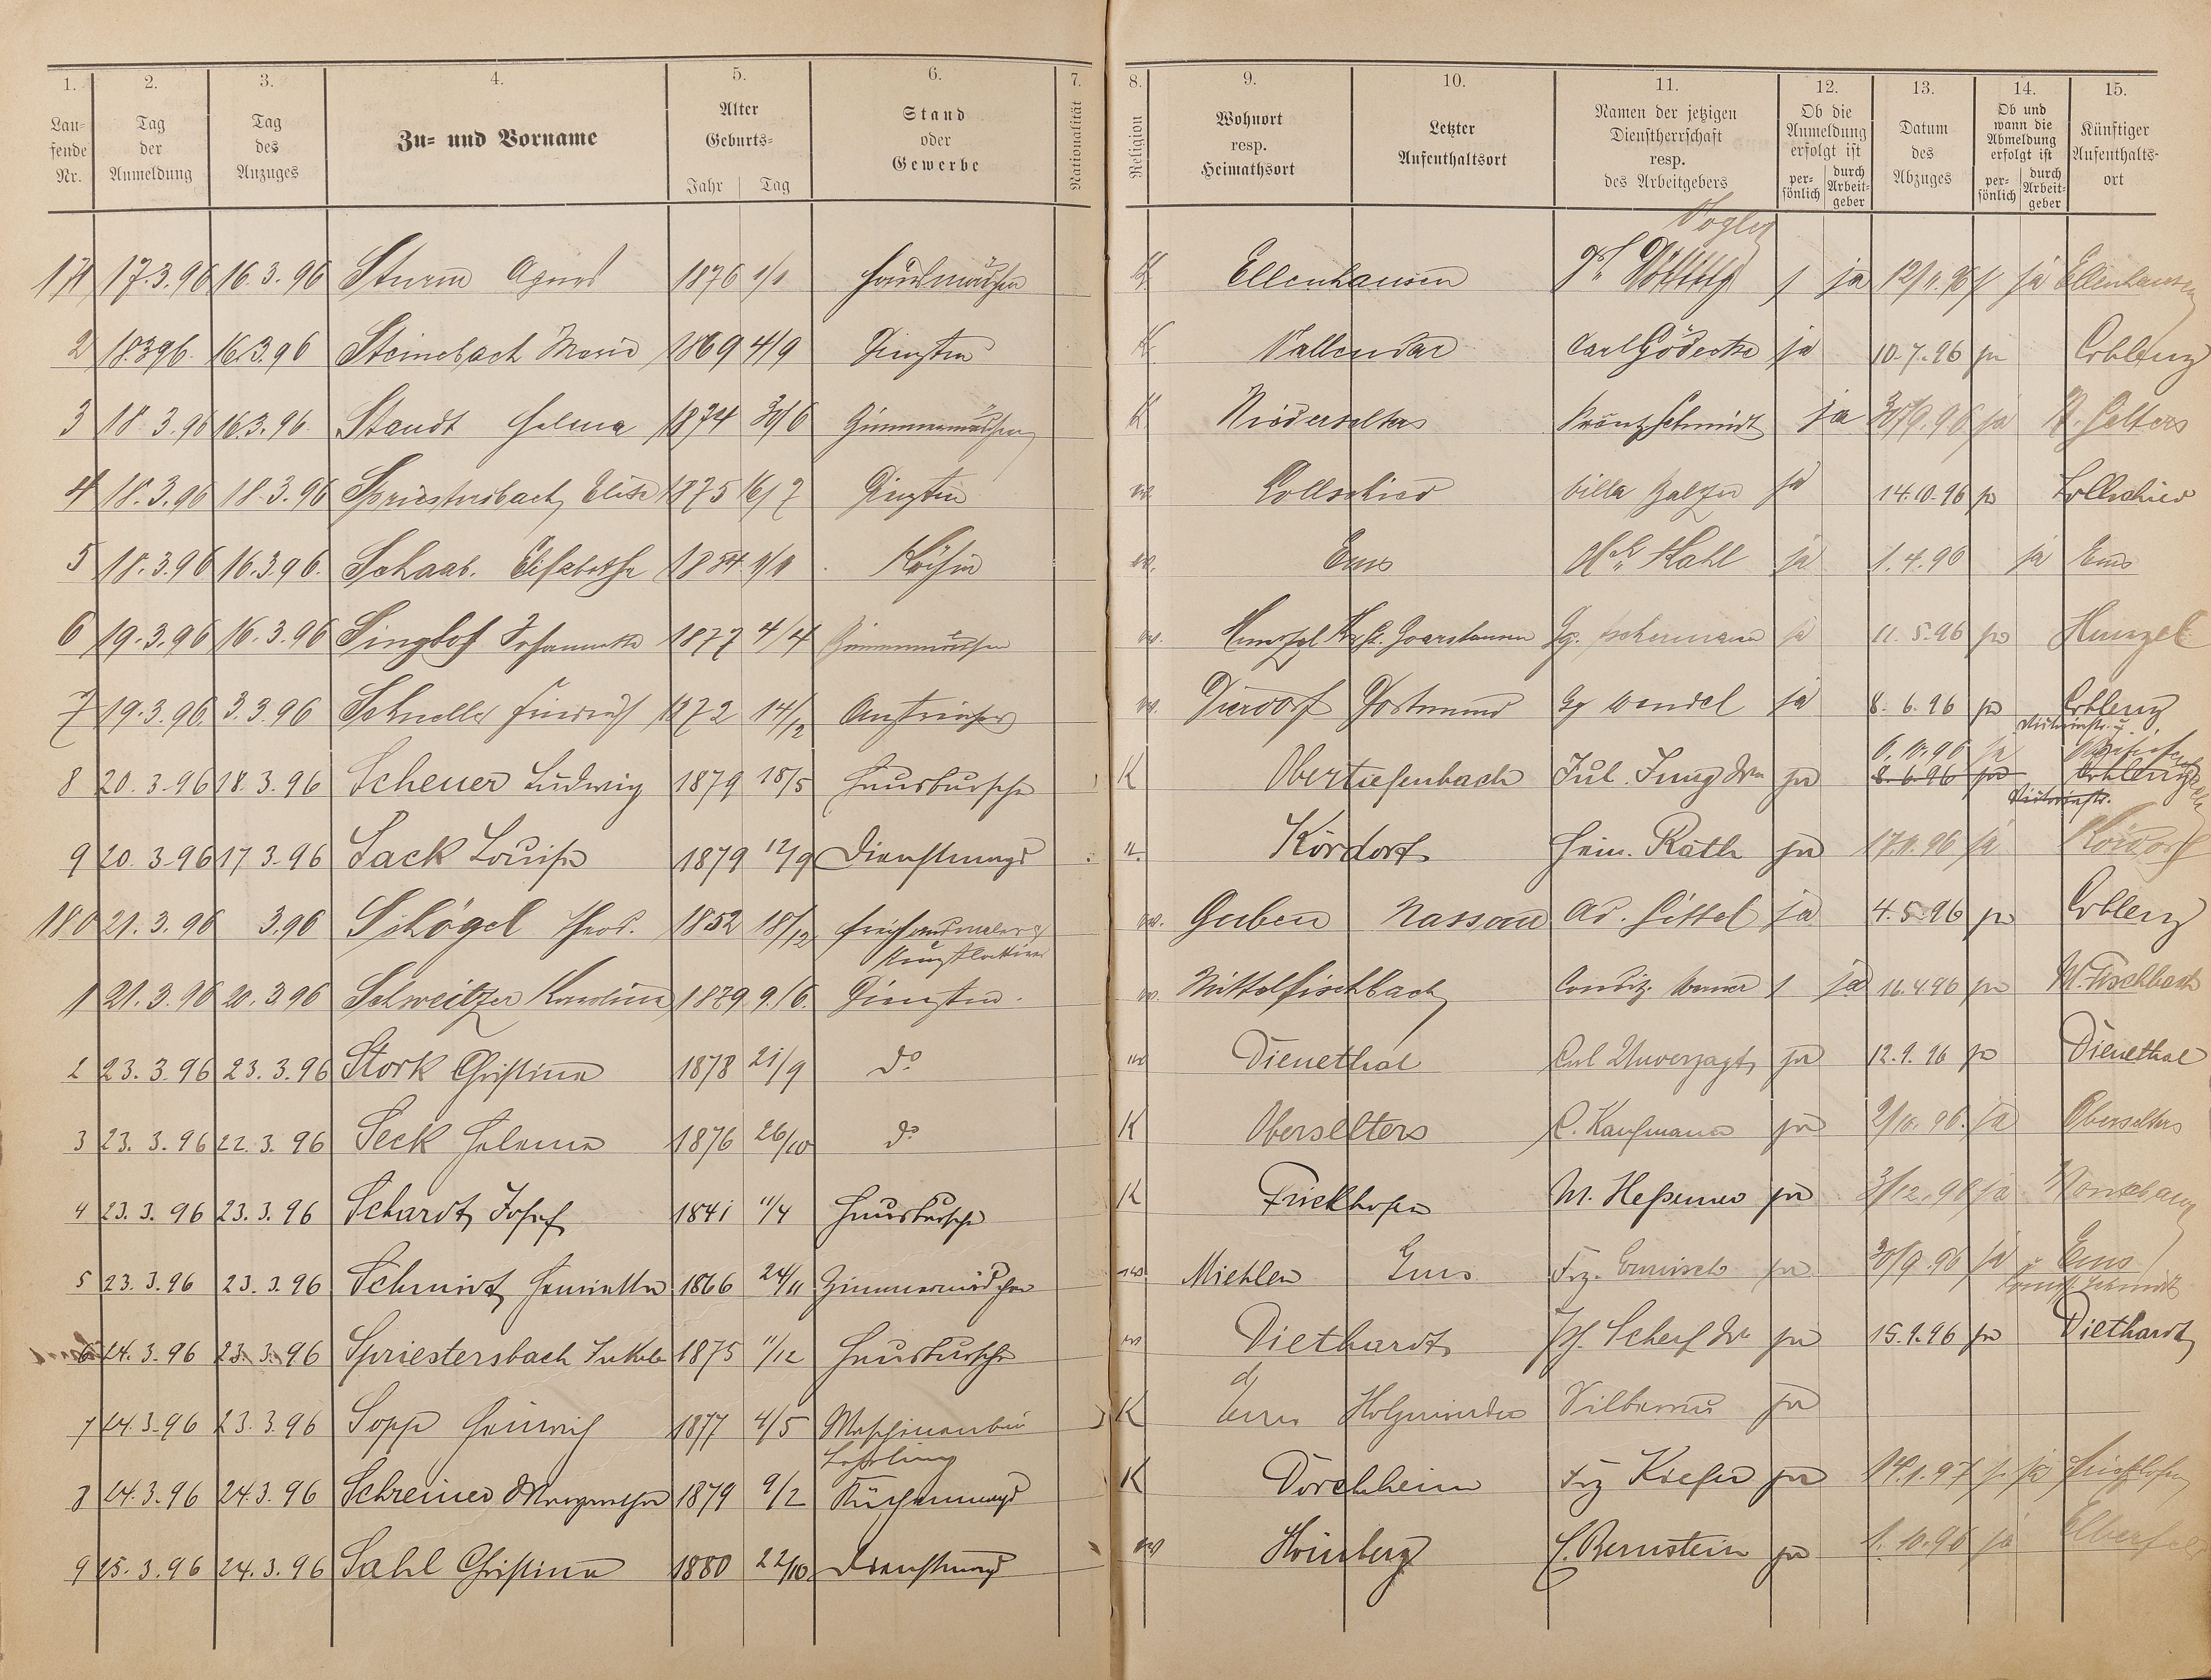 1. 2. 3. 4. 5. 6. 7. 8. 9. 10. 11. 12. 13. 14. 15.
Lau-
fende
Nr.
Tag
der
Anmeldung
Tag
des
Anzuges
Zu- und Vorname
Alter
Geburts-
Jahr Tag
Stand
oder
Gewerbe
Nationalität
Religion
Wohnort
resp.
Heimathsort
Letzter
Aufenthaltsort
Namen der jetzigen
Dienstherrschaft
resp.
des Arbeitgebers
Ob die
Anmeldung
erfolgt ist
per-
sönlich
durch
Arbeit-
geber
Datum
des
Abzuges
Ob und
wann die
Abmeldung
erfolgt ist
per-
sönlich
durch
Arbeit-
geber
Künftiger
Aufenthalts-
ort
Vogler
171 17.3.96 16.3.96 Sturm Agnes 1876 1/1 Hausmädchen K Ellenhausen ja 12/11.96 ja Ellenhausen
2 18.3.96. 16.3.96 Steinebach Maria 1869 4/9 K Vallendar Carl Gödecke ja 10.7.96 ja Coblenz
3 18.3.96 16.3.96. Staudt Helena 1874 30/6 Zimmermädchen K Niederselters Schmidt ja 30/9.96 ja N. Selters
4 18.3.96 18.3.96 Spriestersbach Elise 1875 16/7 ev. Lollschied Villa Balzer ja 14.10.96 ja Lollschied
5 18.3.96 16.3.96. Schaab. Elisabethe 1854 1/1 Köchin ev. Ems Kahl ja 1.4.96 ja Ems
6 19.3.96 16.3.96 Singhof Johannette 1877 4/4 Zimmermädchen ev. Hunzel St. Goarshausen ja 11.5.96 ja Hunzel
7 19.3.96. 3.3.96 Schneller Heinrich 1872 14/12 Anstreicher ev. Dierdorf Dortmund Gg Wendel ja 8.6.96 ja Coblenz
8 20.3.96 18.3.96 Scheuer Ludwig 1879 18/5 Hausbursche K Obertiefenbach Jul. Jung Ww ja 8.6.96 ja Coblenz
6.10.96 ja
Victoriastr.
9 20.3.96 17.3.96 Sack Louise 1879 12/9 Dienstmagd Kördorf Hein. Räth ja 17.11.96 ja Kördorf
180 21.3.96 3.96 Schögel Theod. 1852 18/12 ev. Guben Nassau Ad. Sittel ja 4.5.96 ja Coblenz
1 21.3.96 20.3.96 Schweitzer Karolina 1879 9/6. ev. Mittelfischbach Condit. ja 16.4.96 ja M. Fischbach
2 23.3.96 23.3.96 Stork Christina 1878 21/9 do ev Dienethal Carl Unverzagt ja 12.9.96 ja Dienethal
3 23.3.96 22.3.96 Seck Helena 1876 26/10 do K Oberselters C. Kaufmann ja 2/10.96. ja Oberselters
4 23.3.96 23.3.96 Schardt Josef 1841 11/4 Hausbursche K Frickhofen M. Heßemer ja 3/12.96 ja
5 23.3.96 23.3.96 Schmidt Henriette 1866 24/11 Zimmermädchen ev. Miehlen Ems Frz. Ermisch ja 30/9.96 ja Ems
Schmidt
6 24.3.96 23.3.96 Spriestersbach Jakob 1875 11/12 Hausbursche ev Diethardt Ph. Scherf Ww ja 15.9.96 ja Diethardt
7 24.3.96 23.3.96 Sopp Heinrich 1877 4/5 Maschinenbau K Ems Holzminden ja
Lehrling
8 24.3.96 24.3.96 Schreiner Margaretha 1879 9/2 Küchenmagd K Dorchheim Frz Kiefer ja 14.1.97 ja
9 25.3.96 24.3.96 Sahl Christina 1880 22/10 Dienstmagd ev Hömberg Bernstein ja 1.10.96 ja Elberfeld